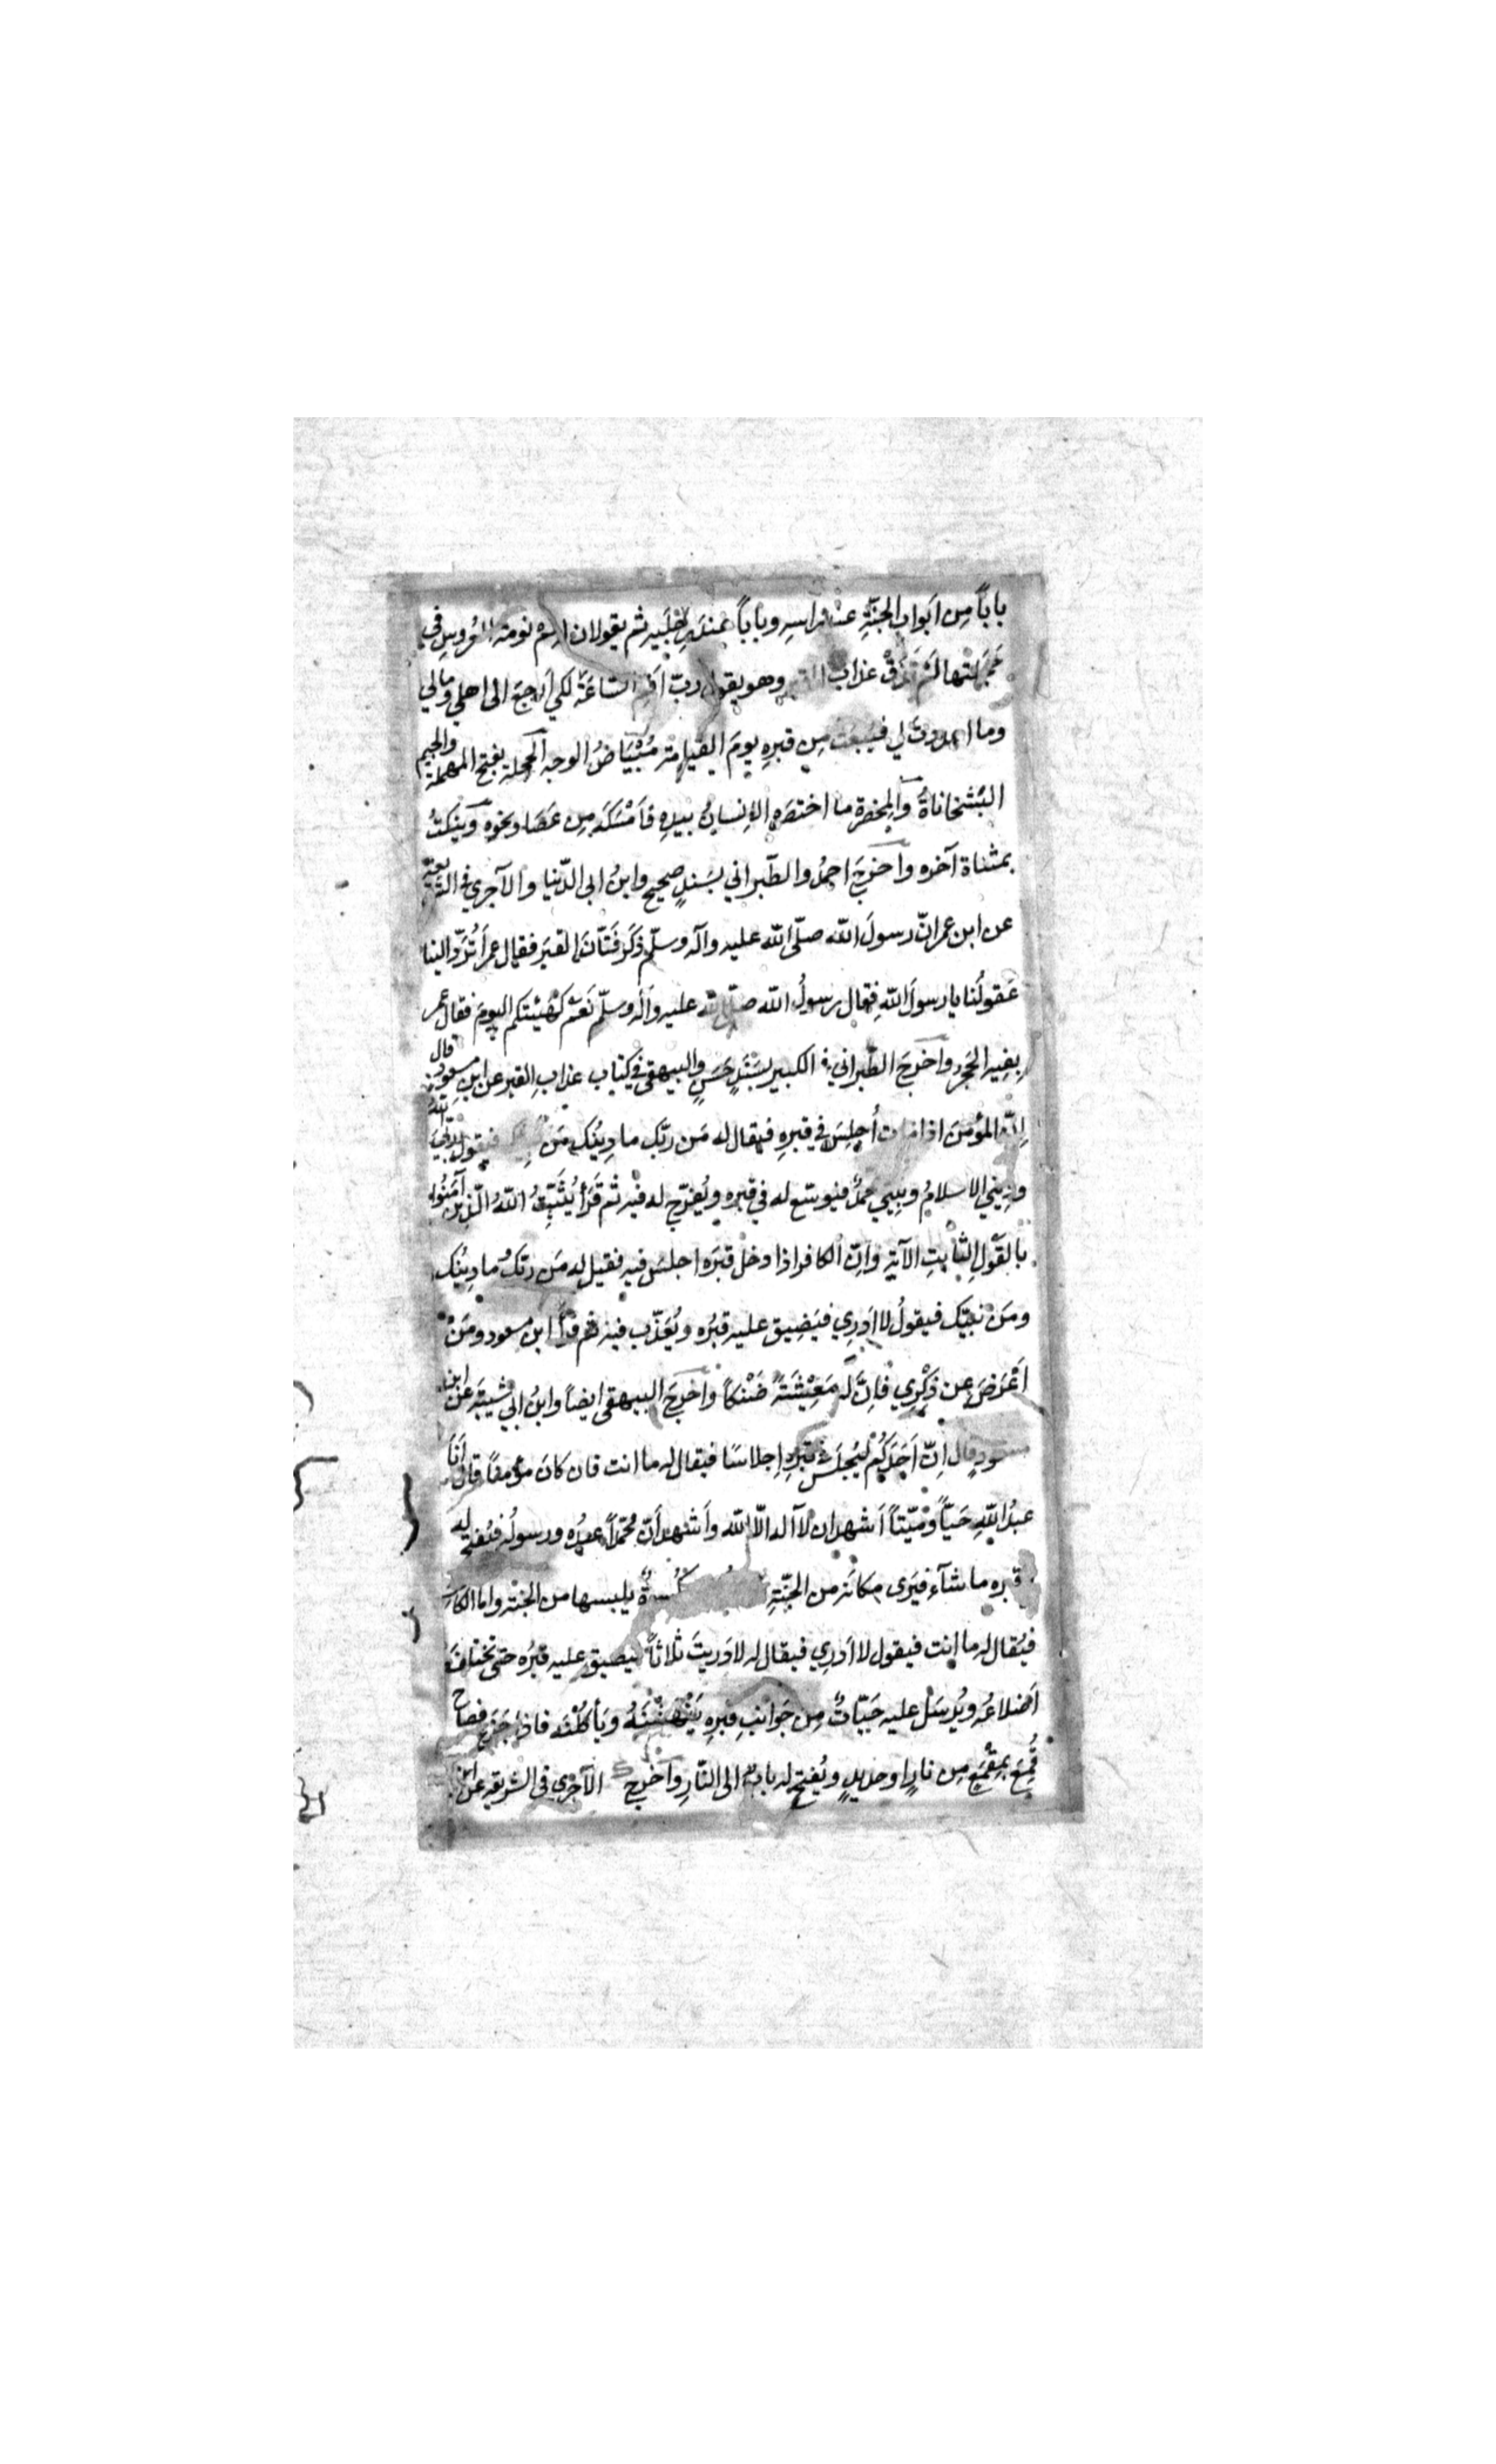 باباً مِن اَبوابِ الجنّةِ عند راسِهِ وباباً عندَ رِجلَيهِ ثم يقولان له نَم نومة العُروسِ في
حَجَلتها لَم تَذُقْ عذاب القبر وهو يقول ربّ اَقِمِ الساعَةَ لكي اَرجعَ الى اهلي ومالي
وما اعددتَ لي فيُبعَث مِن قبرِهِ يومَ القيامة مُبْيَاضُ الوجه الحجلة بفتح المهملة والجيم
البَشخاناةُ والمِخصرة ما اختصره الاِنسانُ بيدِهِ فاَمْسَكَه مِن عَصَا ونحوه وينكتُ
بمثناة آخره واخرجَ احمدُ والطّبراني بسَندٍ صحيح وابنُ ابى الدّنيا والآجري في الشريعة
عن ابن عمر انّ رسولَ الله صلّى الله عليه وآله وسلّم ذَكَر فَتّانَ القبَر فقال عمر اَتُرَدُّ الينا
عَقولُنا يا رسولَ اللهِ فقال رسولُ الله صلّى الله عليه وآله وسلّم نَعَمْ كهَيْئتكم اليومَ فقال عمر
بِفِيهِ الحَجَر واخرجَ الطّبراني في الكبير بسَنَدٍ حَسَنٍ والبيهقى في كتاب عذابِ القبر عن ابنِ مسعود قال
اِنّ المؤمنَ اذا مات اُجلِسَ في قبرِهِ فيقال له مَن ربّك ما دِينُك مَن نبيّك فيقول اللهُ ربّي
ودِيني الاسلامُ ونبِيّي محمدٌ فيوسّع له في قبره ويُفرّج له فيه ثم قَرَأ يُثَبِّتُ اللّهُ الّذين آمَنُوا
بالقَوْلِ الثابِتِ الآيَة وانّ الكافر اذا دخل قبرَه اجلسَ فيه فقيل له مَن ربّكُ ما دِينُك
ومَن نبيّك فيقولُ لا اَدرِي فيَضِيق عليه قبرُه ويُعَذّب فيه ثم قرأ ابن مسعود ومَنْ
اَعْرَضَ عن ذِكْرِي فاِنَّ له مَعِيْشَةً ضَنْكاً واخرجَ البيهقى ايضاً وابنُ ابي شيبة عن ابن
مسعودٍ قال اِنّ اَحَدَكُم ليُجلَسُ في قبرِهِ اِجلاسًا فيقال له ما انت فان كانَ مؤمِناً قال اَنَا
عبدُ اللهِ حَيّاً ومَيّتاً اَشهد ان لا اله الاّ الله واَشهد اَنّ مُحمّداً عبدُه ورسولُه فيُفتح له
قبره ما شآء فيَرى مكانَه من الجنّةِ كُسوةٌ يلبسها من الجنة واما الكافر
فيُقال له ما انت فيقول لا اَدرِي فيقال له لا دَرِيتَ ثلاثاً فيضيق عليه قبرُه حتى تختلفَ
اَضلاعُه ويُرسَل عليه حَيّاتٌ مِن جَوانبِ قبرِهِ يَنْهَشْنَهُ ويأكُلْنَه فاذا جَزِعَ فصاح
قُمِعَ بمِقْمَعٍ مِن نارٍ او حديدٍ ويُفتح له بابٌ الى النّارِ واخرج الآجُرى في الشريعة عن ابن